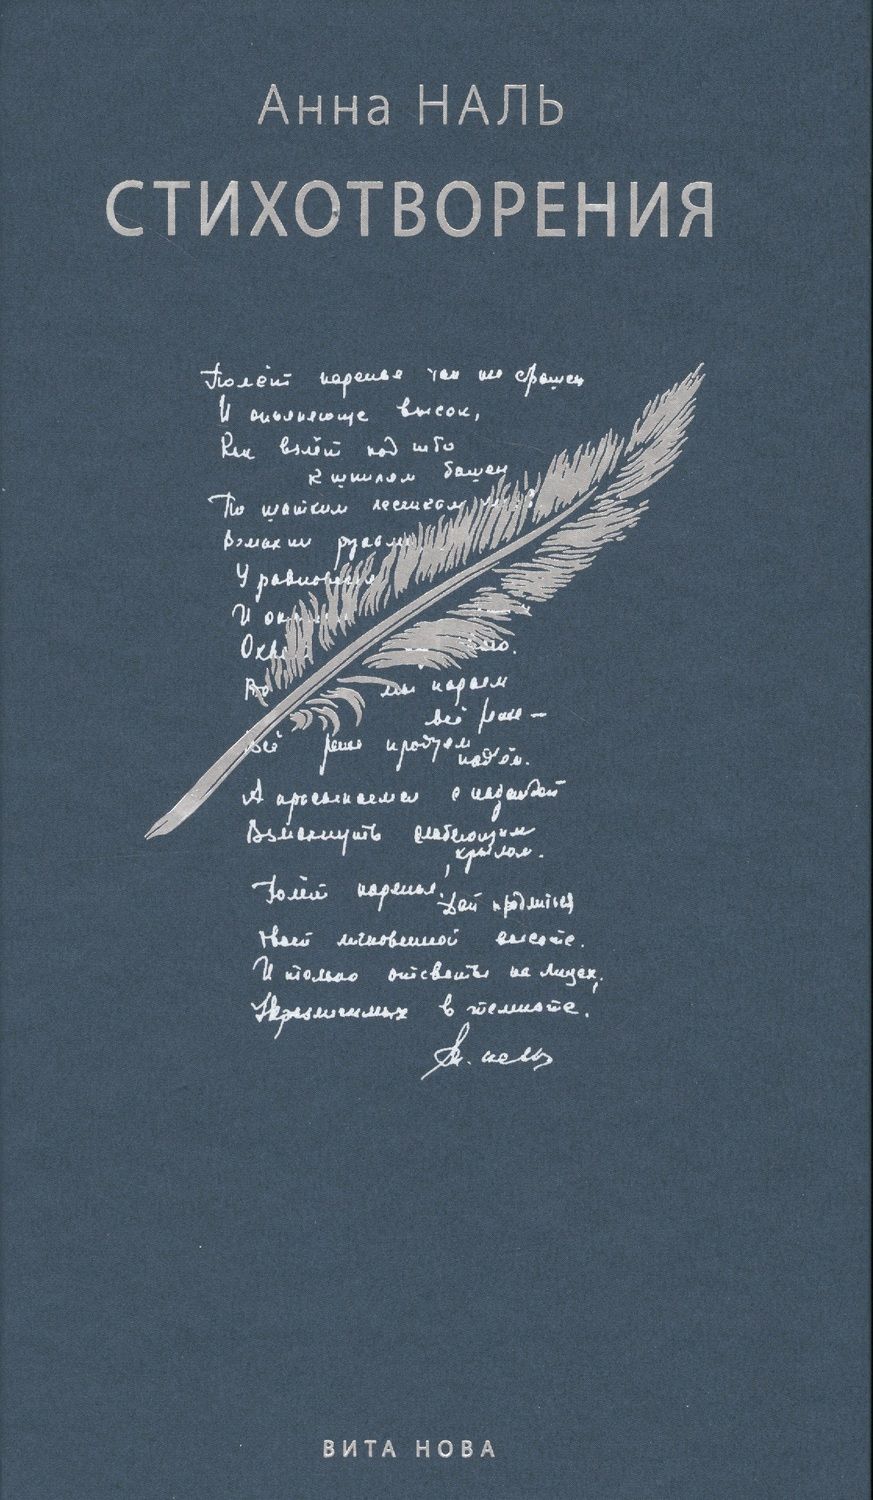 Анна НАЛЬ
СТИХОТВОРЕНИЯ
Полёт паренье так же страшен
И опьяняюще высок,
Как взлёт под небо
к шпилям башен
По шатким лесенкам
Взмахни руками
У равновесие
И
Охва
Во мы падаем
всё реже —
Всё реже пробуем
подъём.
А просыпаемся с надеждой
Взмахнуть слабеющим
крылом.
Полёт паренье, дай продлиться
Твоей мгновенной высоте.
И только отсветы на лицах,
Неразличимых в темноте.
Ан. Наль
ВИТА НОВА